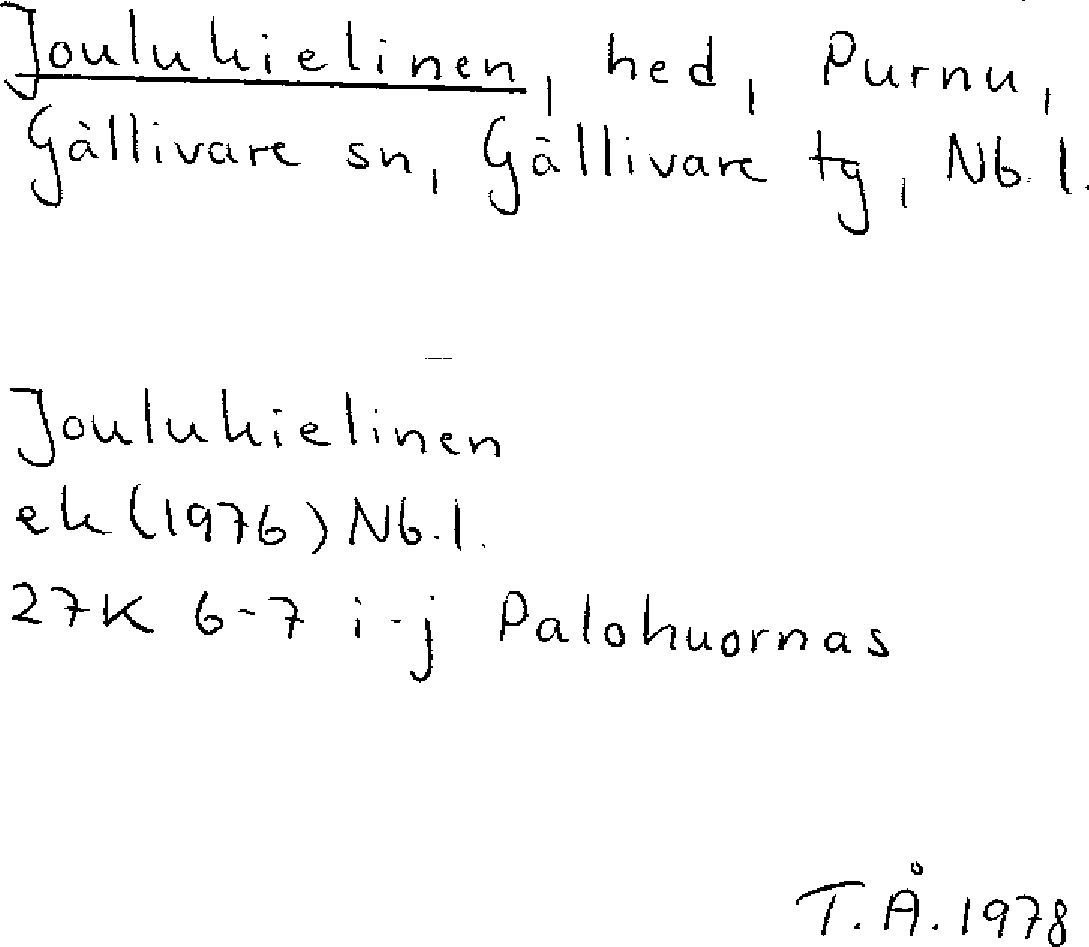 Joulukielinen, hed, Purnu,
Gällivare sn, Gällivare tg, Nb. l.
Joulukielinen
ek (1976) Nb. l.
27K 6-7 i-j Palohuornas
T. Å. 1978